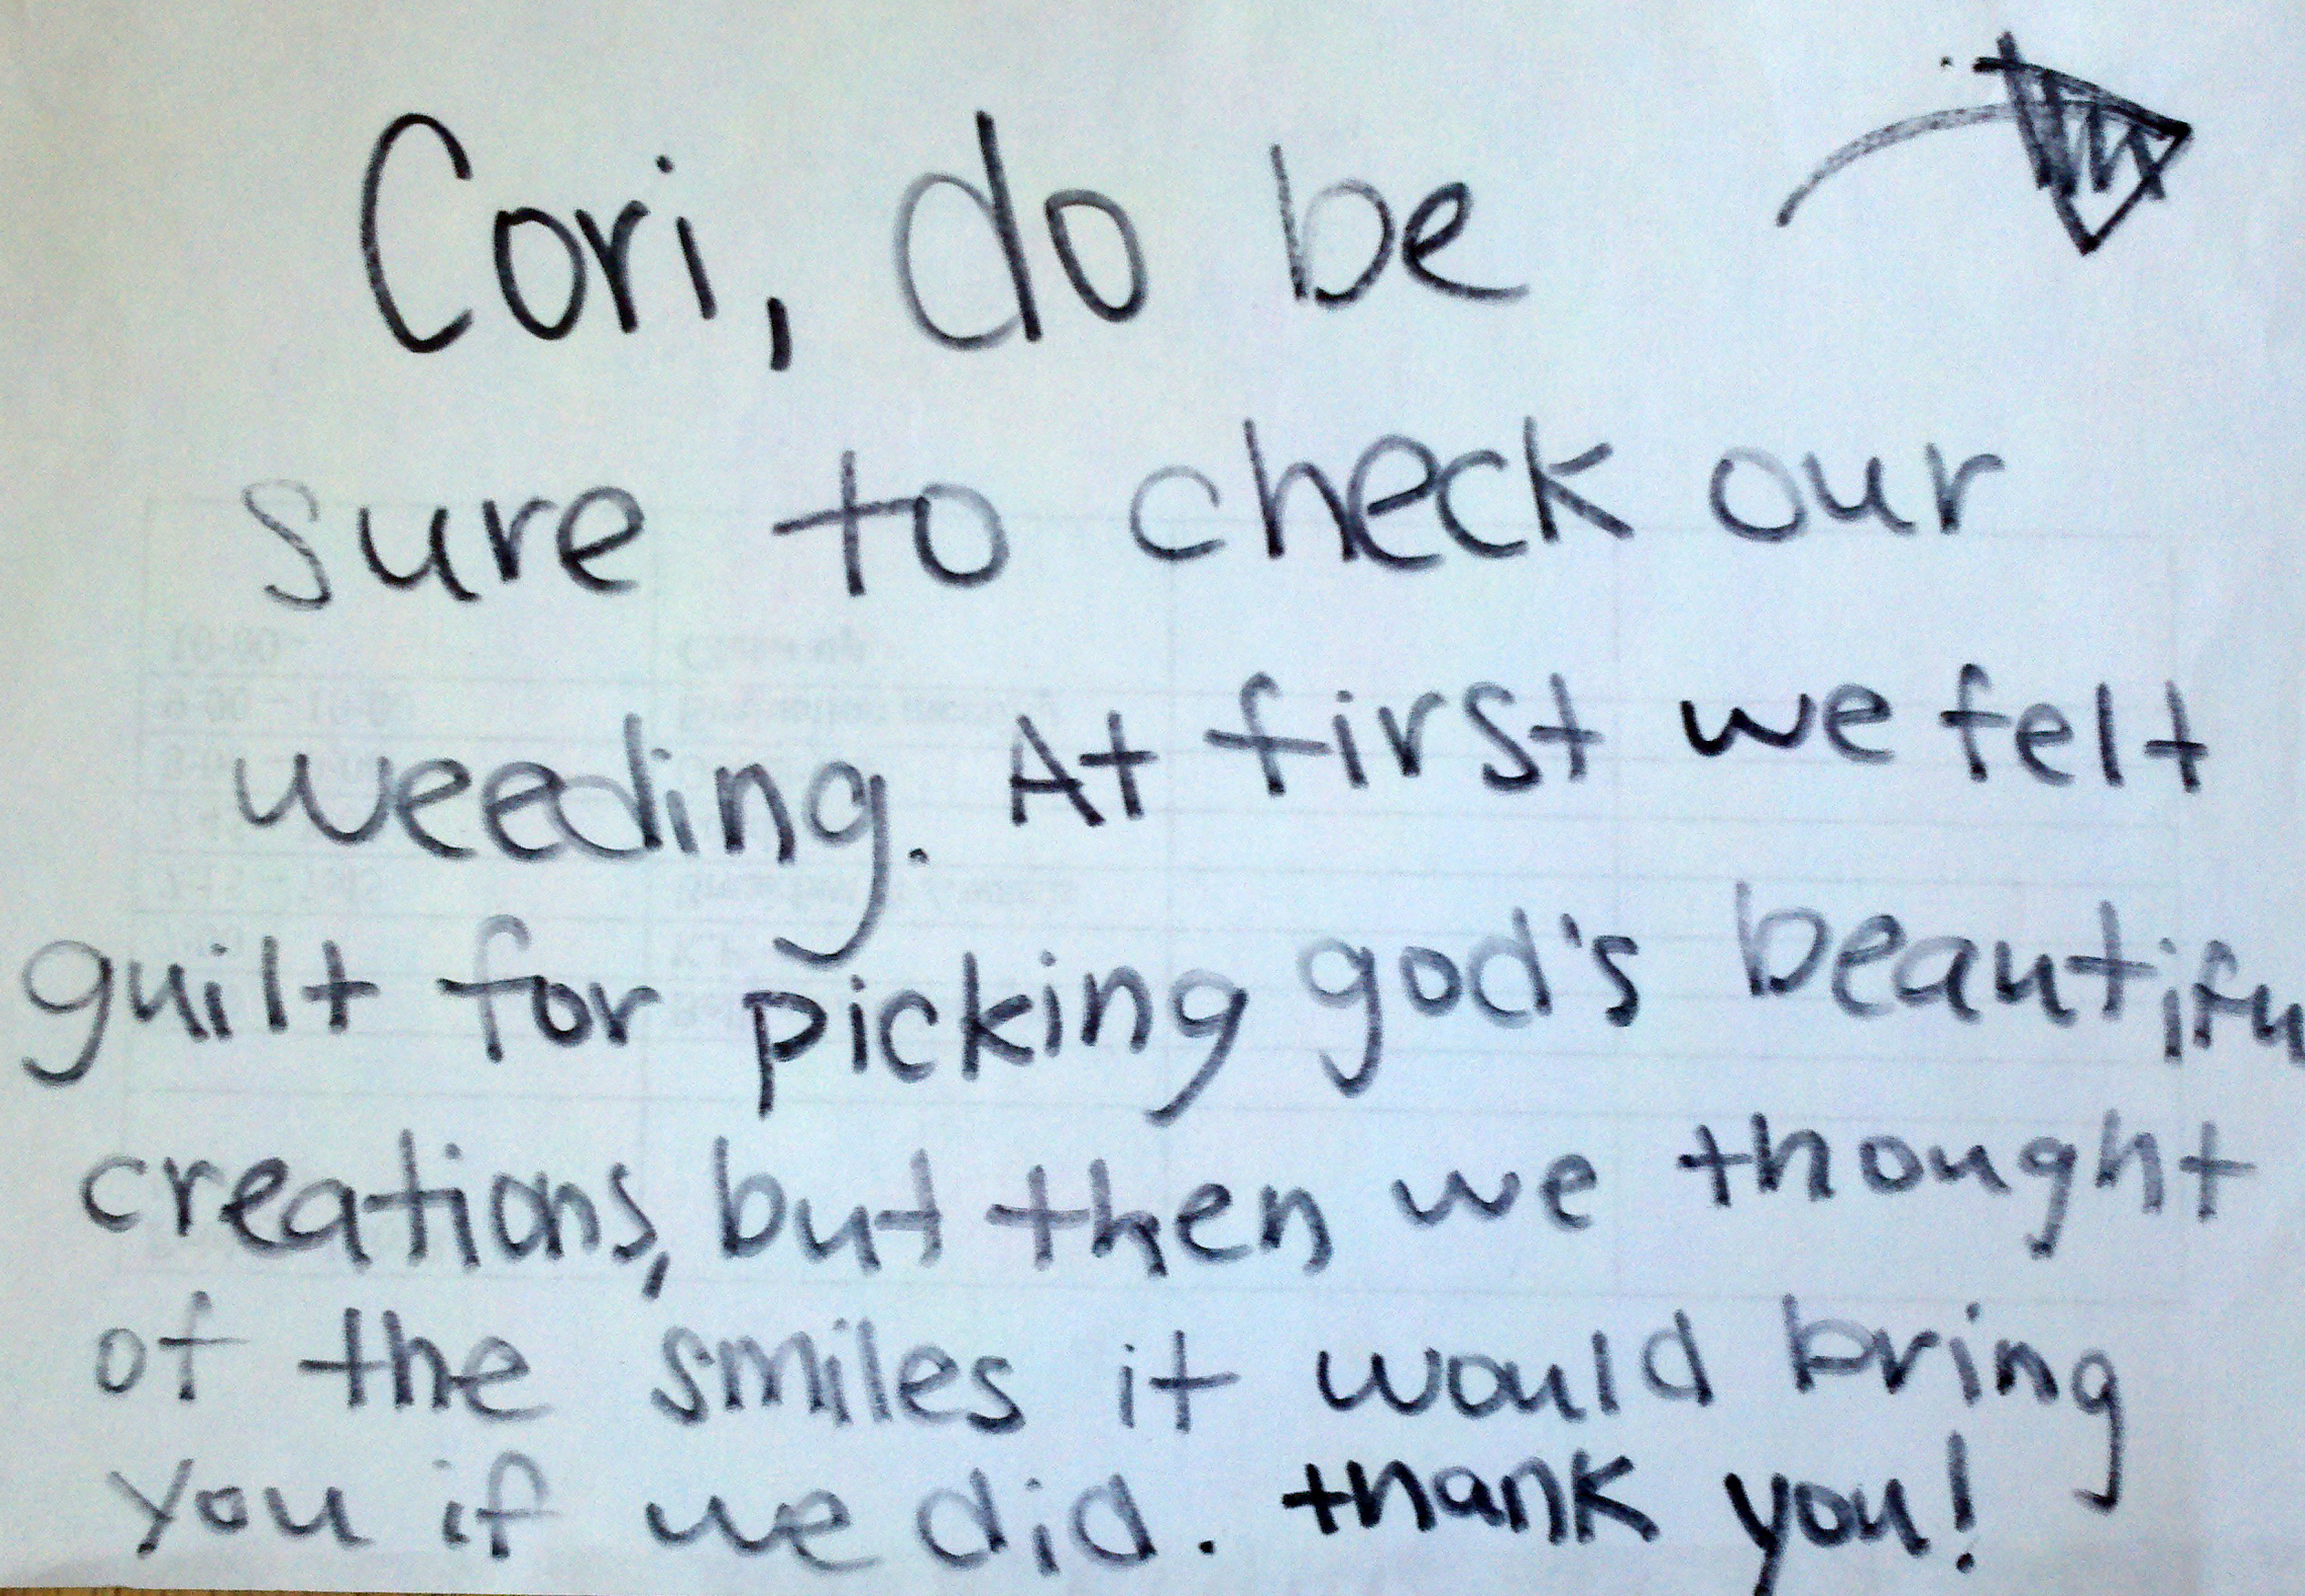 Cori, do be
sure to check our
weeding. At first we felt
guilt for picking god's beautifu
creations, but then we thought
of the smiles it would bring
you if we did. thank you!